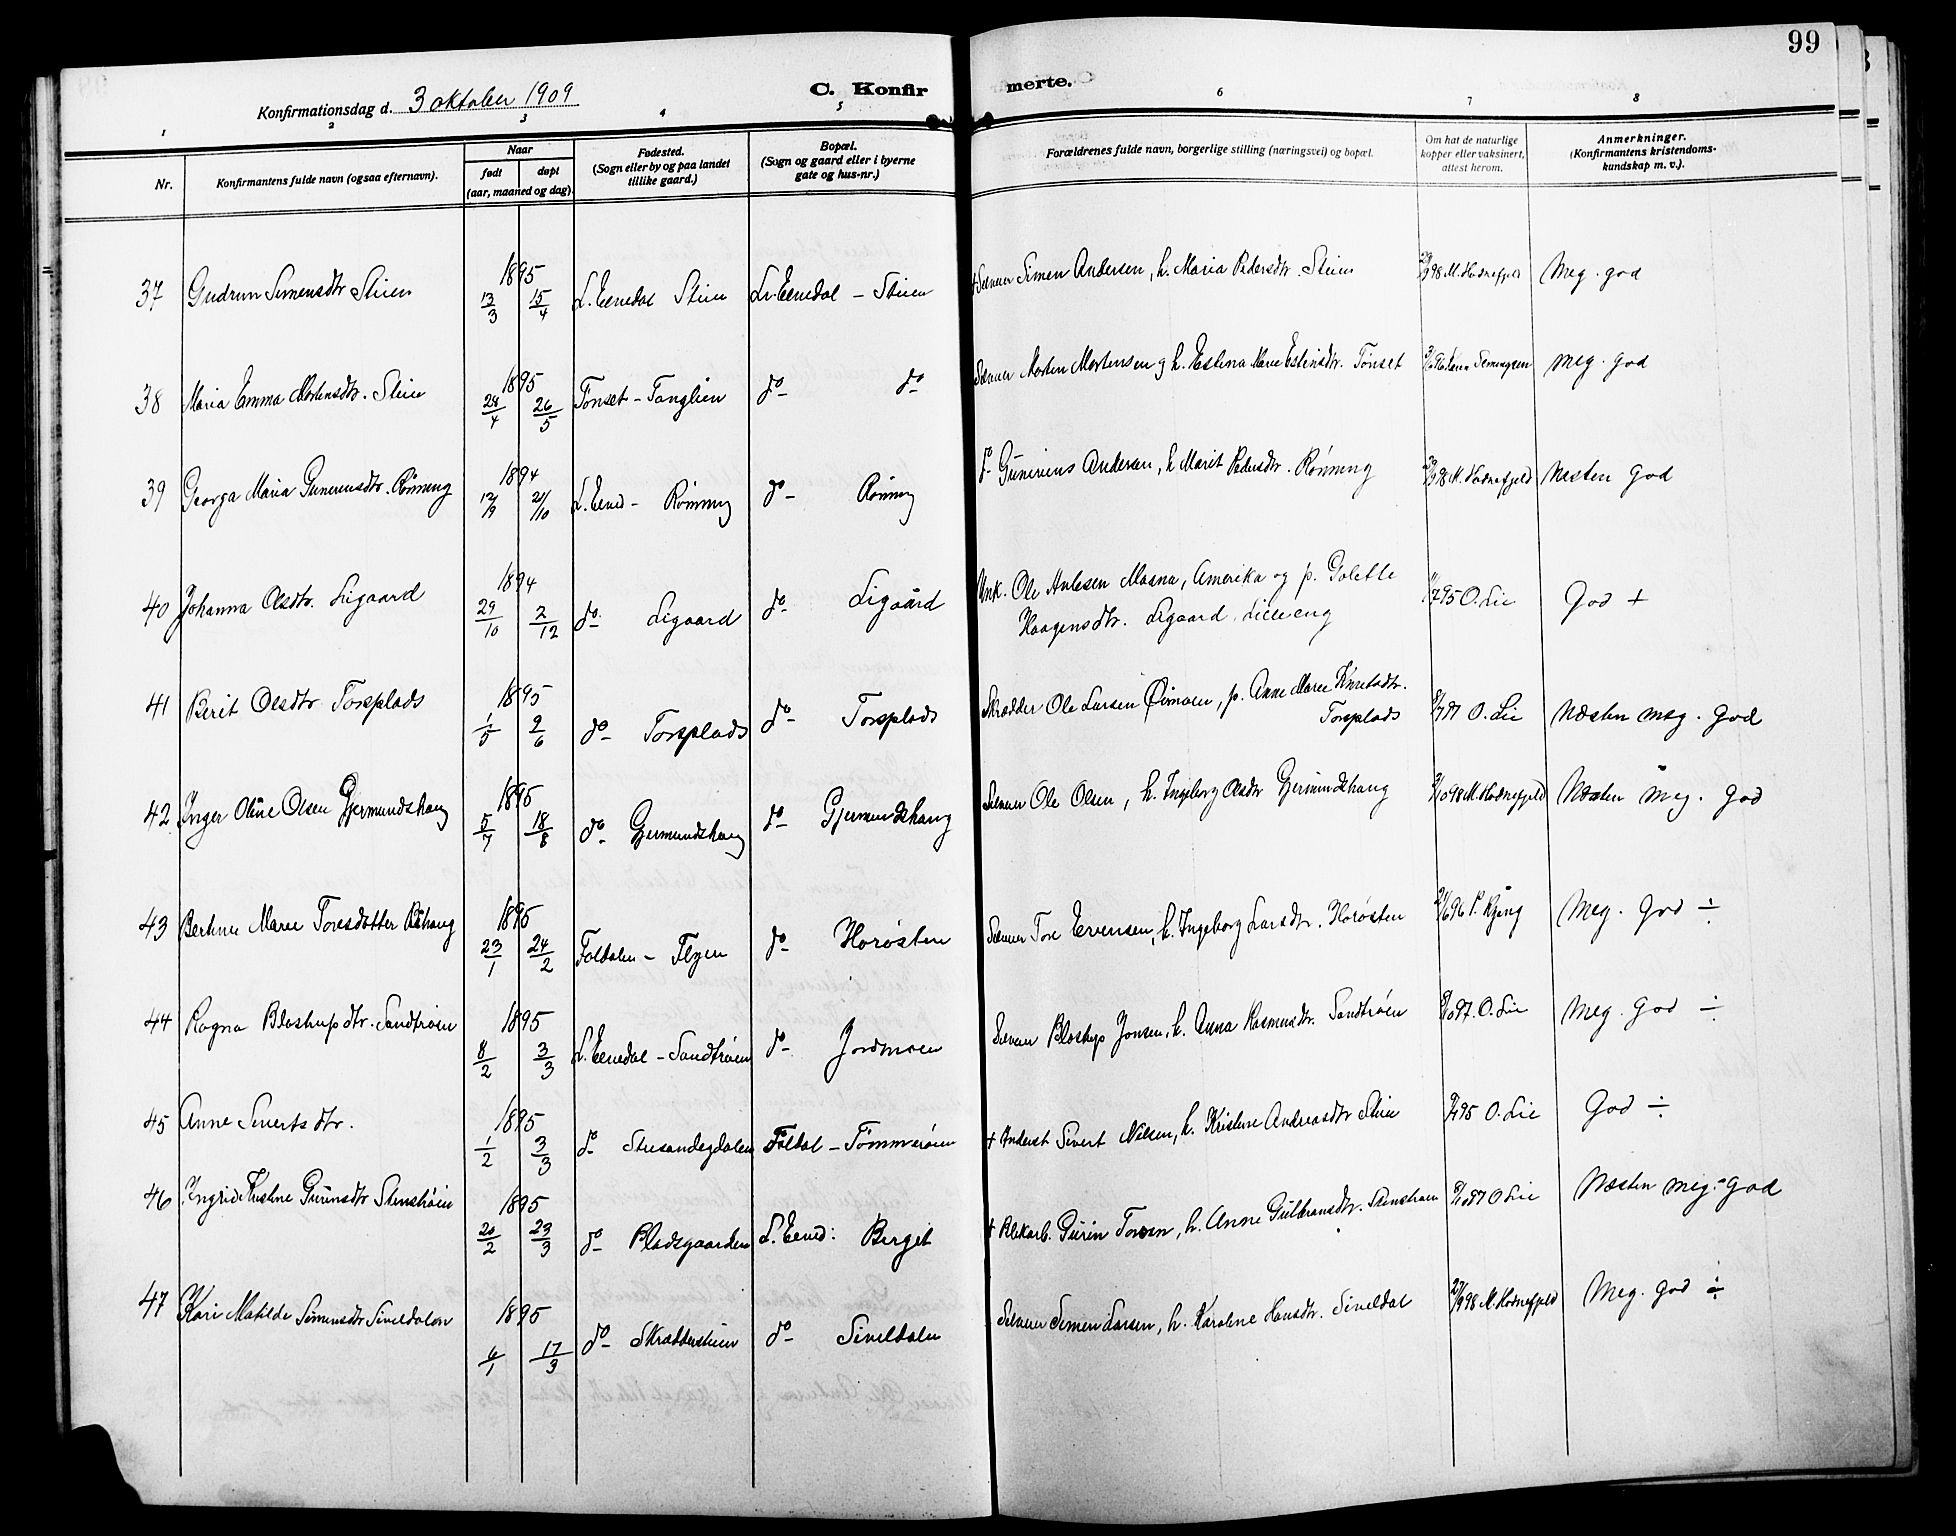 99
Konfirmationsdag d. 3 oktober 1909
C. Konfirmerte.
1 2 3 4 5 6 7 8
Nr.
Konfirmantens fulde navn (ogsaa efternavn).
Naar
født
døpt
(aar, maaned og dag).
Fødested.
(Sogn eller by og paa landet
tillike gaard.)
Bopæl.
(Sogn og gaard eller i byerne
gate og hus-nr.)
Forældrenes fulde navn, borgerlige stilling (næringsvei) og bopæl.
Om hat de naturlige
kopper eller vaksinert,
attest herom.
Anmerkninger.
(Konfirmantens kristendoms-
kundskap m. v.).
37 Gudrun Simensdtr Stien 1895 13/3 15/4 L. Elvedal Stien L. Elvedal - Stien + Selveier Simen Andersen, h. Maria Pedersdtr. Stien 98 M. Hodnefjeld Meg. god
38 Maria Emma Mortensdtr. Stien 1895 28/4 26/5 Tønset - Tanglien do - do Selveier Morten Mortensen og h. Estina Marie Estensdtr. Tønset Meg. god
39 Georga Maria Guneriusdtr. Rønning 1894 12/9 21/10 L. Elved - Rønning do - Rønning do - Gunerius Andersen, h. Marit Pedersdtr. Rønning 98 M. Hodnefjeld Næsten god
40 Johanna Olsdtr. Ligaard 1894 29/10 2/12 do - Ligaard do - Ligaard Unk. Ole Moana, Amerika og p. Golette
Haagensdtr. Ligaard, Lilleeng 95 O. Lie God +
41 Berit Olsdtr Torsplads 1895 1/5 2/6 do - Torsplads do - Torsplads Skrædder Ole Larsen Øimoen, p. Anne Marie
Torsplads O. Lie Næsten meg. god
42 Inger Oline Olsen Gjermundshaug 1895 5/7 18/8 do - Gjermundshaug do - Gjermundshaug Selveier Ole Olsen, h. Ingeborg Olsdtr Gjermundshaug 98 M. Hodnefjeld Næsten meg. god
43 Marie Toresdatter 1895 23/1 24/2 Foldalen - Flyen do - Horøsten Selveier Tore Evensen, h. Ingeborg Larsdtr. Horøsten 96 P. Meg. God ÷
44 Ragna Blostrupdtr. Sandtrøen 1895 8/2 3/3 L. Elvedal - Sandtrøen do - Jordmoen Selveier Blostrup Jonsen, h. Anna Rasmusdtr. Sandtrøen 97. O. Lie Meg. God ÷
45 Anne Sivertsdtr. 1895 1/2 3/3 do - Foldal - Tømmerøien + Inderst Sivert Nilsen, h. Kristine Andreasdtr Stien 95 O. Lie God ÷
46 Ingrid 1895 20/2 23/3 do - Bladsgaarden L. Elved: Berget + Blikarb. Torsen, h. Anne Gulbransdtr. 97 O Lie Næsten meg. god
47 Kari Matilde Simensdtr Siveldalen 1895 6/1 17/3 do - Skrædderstien do - Siveldalen Selveier Simen Larsen, h. Karoline Hansdtr. Siveldal 98 M. Hodnefjeld Meg. god ÷